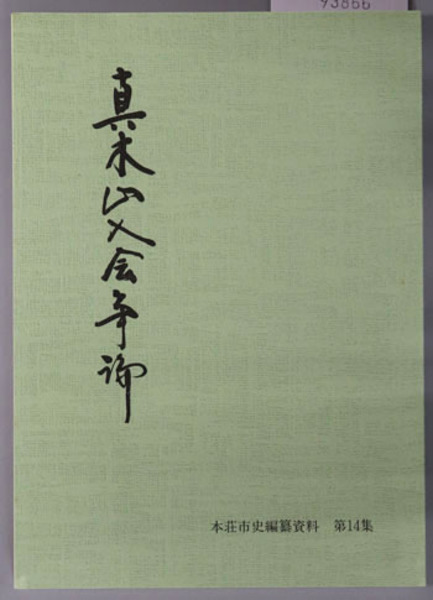 93866
真木山入会争論
本荘市史編纂資料 第14集